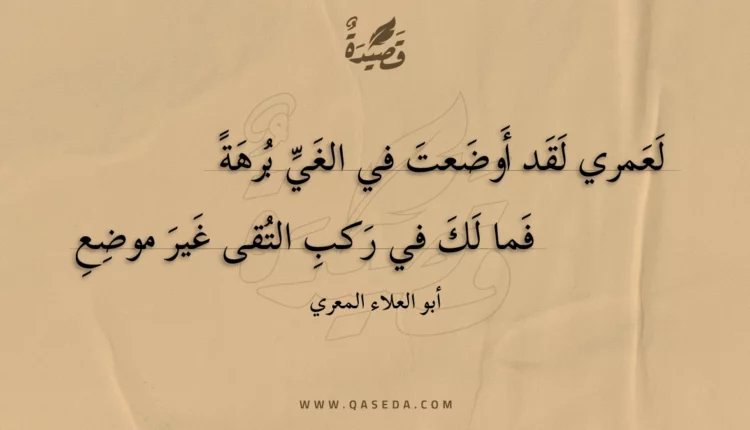 قَصِيدَةٌ
لَعَمري لَقَد أَوضَعتَ في الغَيِّ بُرهَةً
فَما لَكَ في رَكبِ التُقى غَيرَ موضِعِ
أبو العلاء المعري
WWW.QASEDA.COM